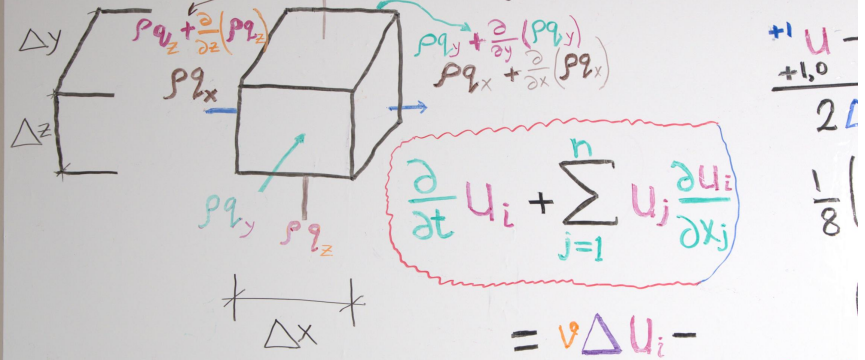 Δy
ρq_z + ∂/∂z(ρq_z)
ρq_y + ∂/∂y(ρq_y)
ρq_x + ∂/∂x(ρq_x)
ρq_x
Δz
ρq_y
ρq_z
Δx
∂/∂t u_i + Σ_{j=1}^{n} u_j ∂u_i/∂x_j
= νΔu_i −
+1 u −
+1,0
2
1/8 (